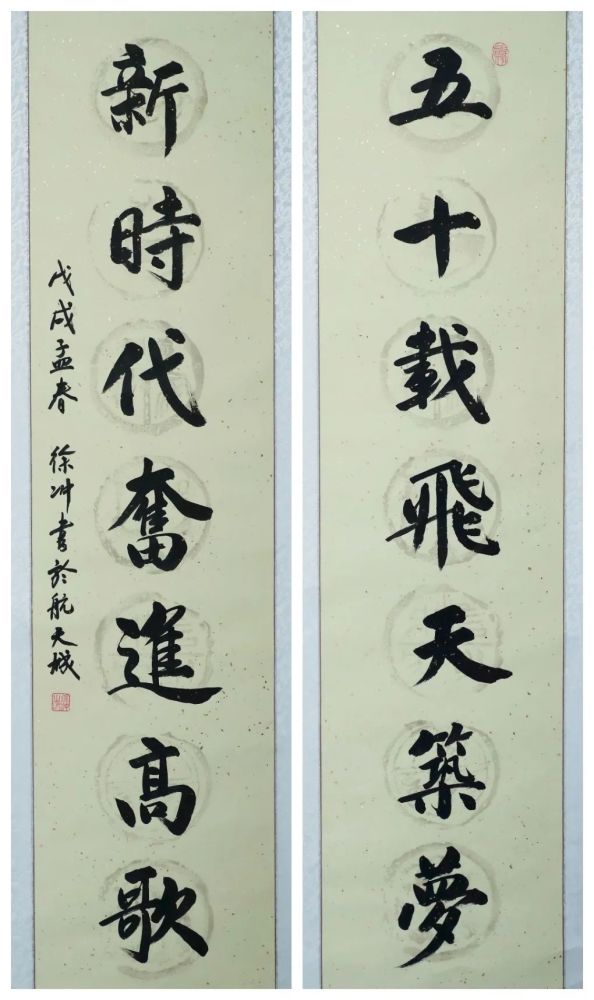 五十載飛天築夢
新時代奮進高歌
戊戌孟春 徐冲書於航天城